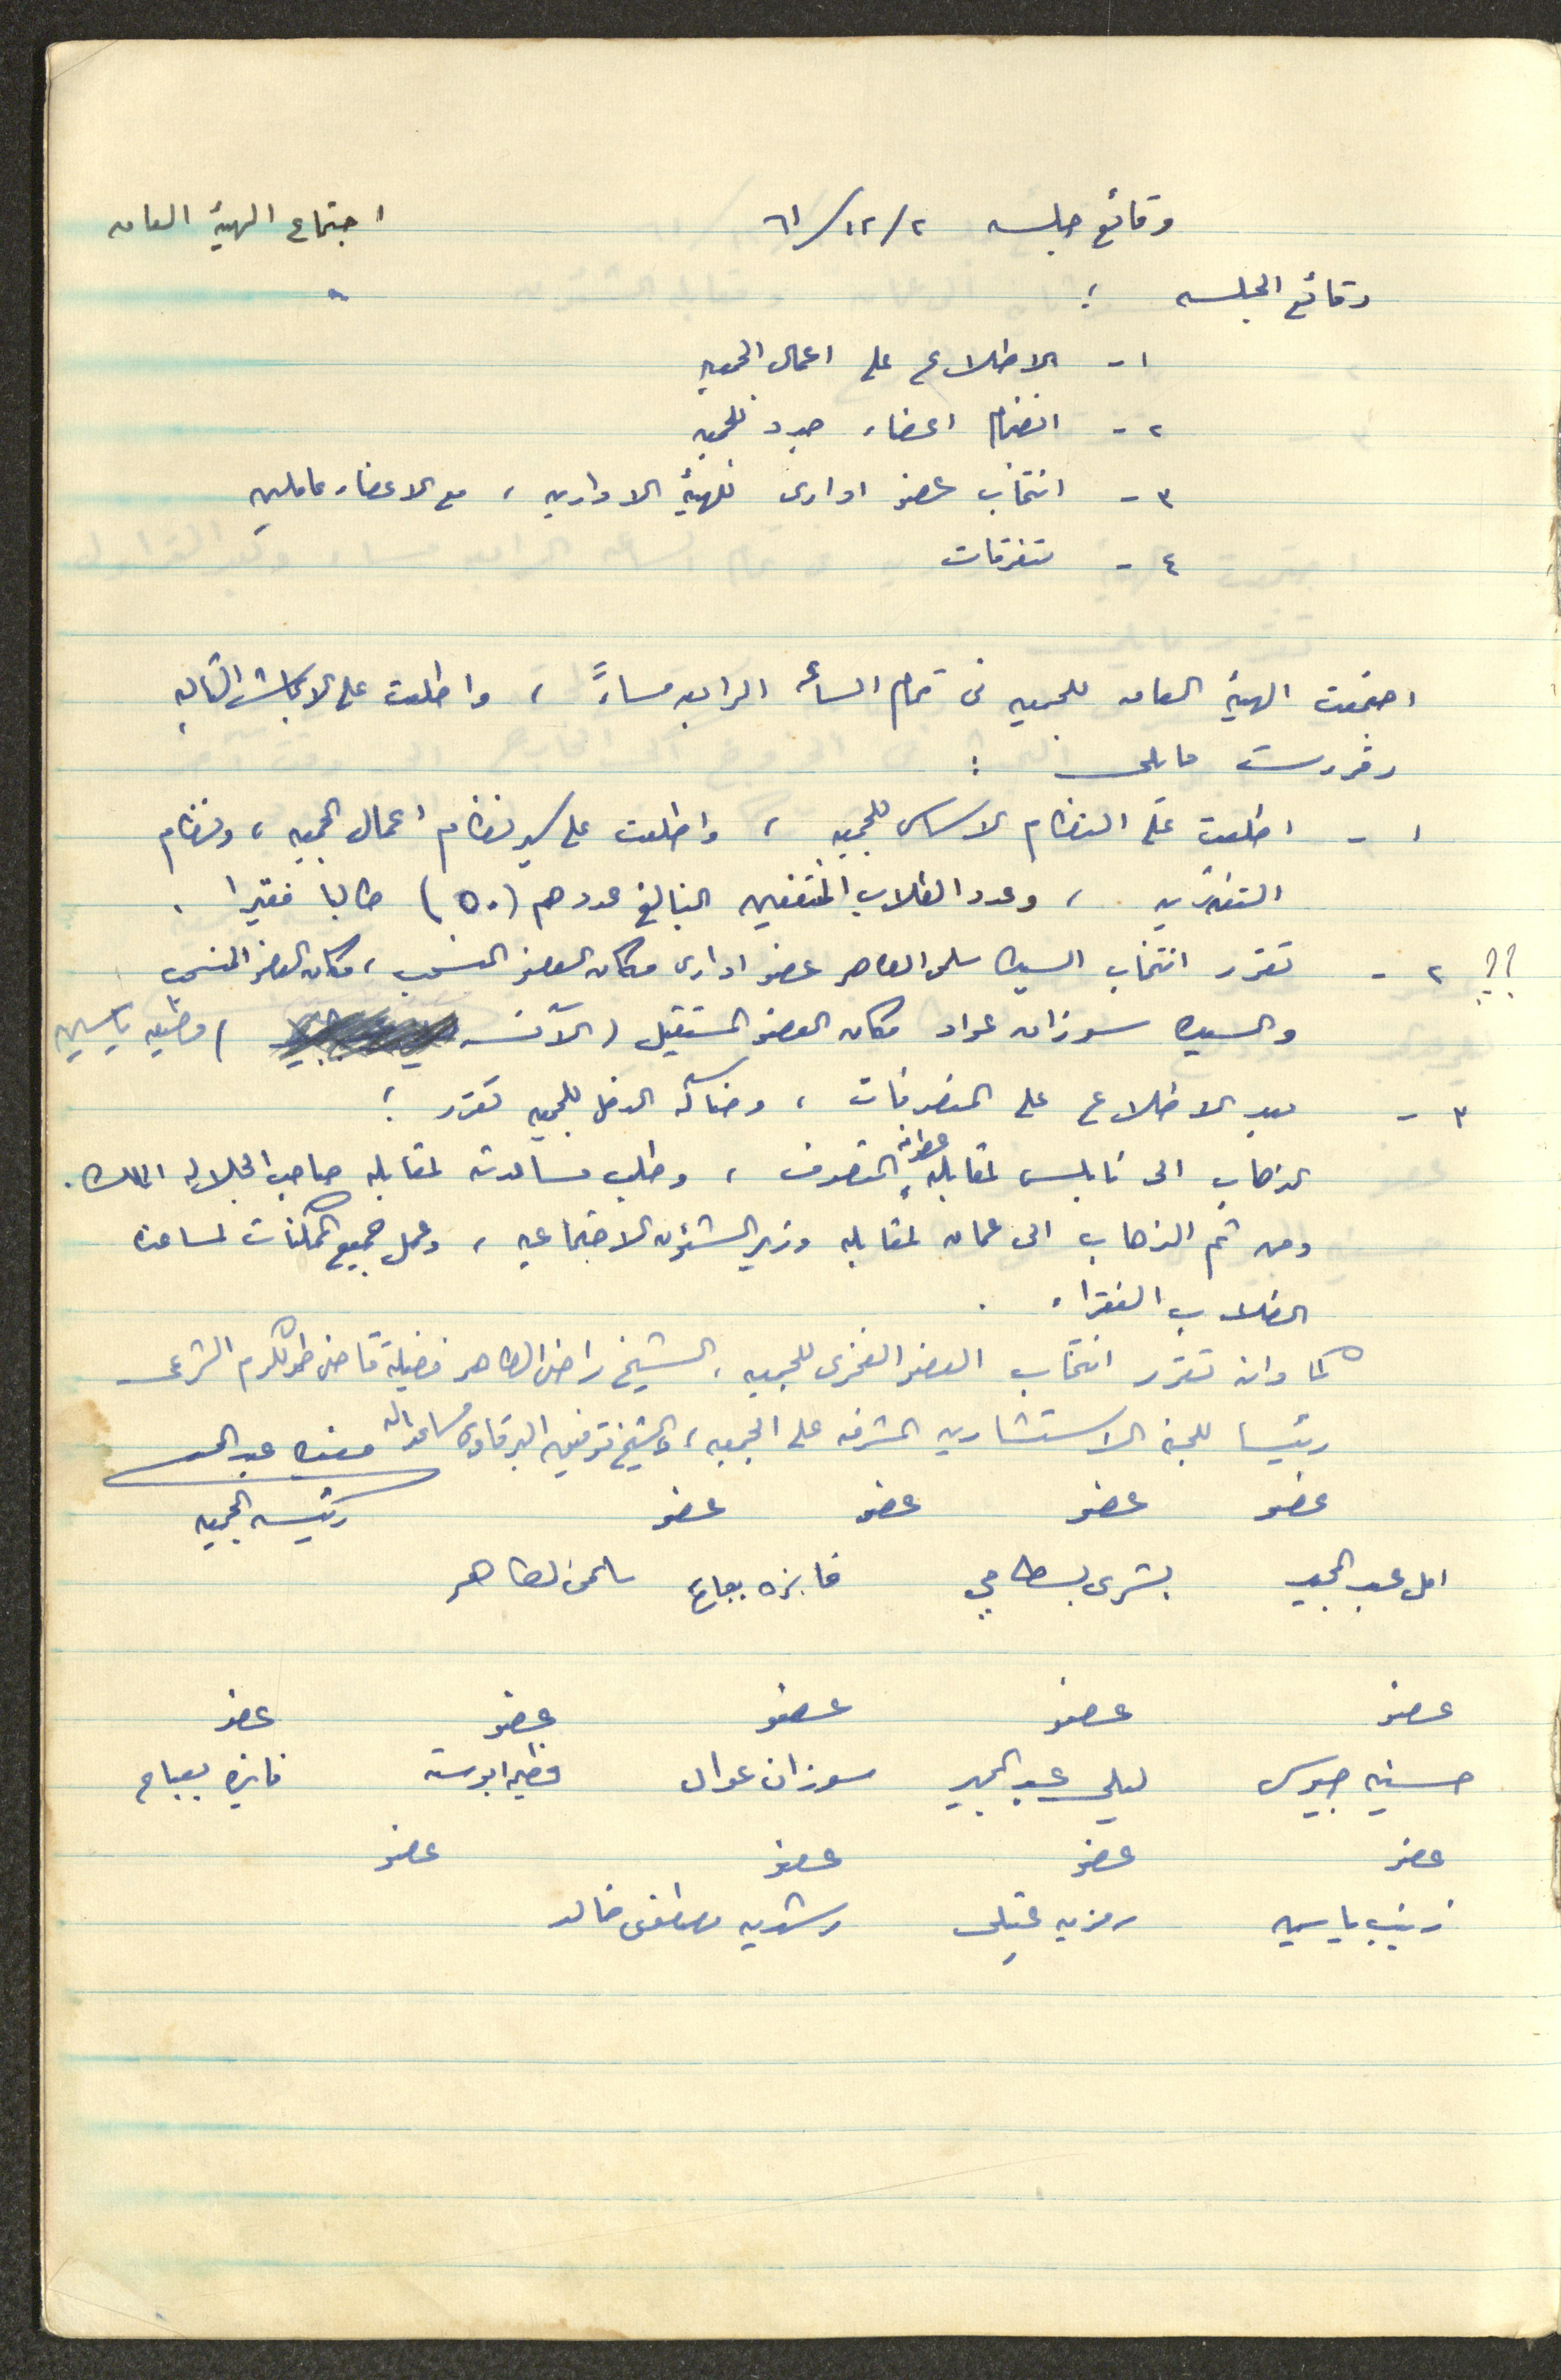 وقائع جلسه ٢/١٢/٦١
اجتماع الهيئة العامه
وقائع الجلسه :
١- الاطلاع على اعمال الجمعيه
٢- انضمام اعضاء جدد للجمعيه
٣- انتخاب عضو ادارى للهيئة الاداريه ، مع الاعضاء عاملين
٤- متفرقات
اجتمعت الهيئة العامه للجمعيه فى تمام الساعه الرابعه مساءً ، واطلعت على الابحاث التاليه
وقررت مايلى :
١- اطلعت على النظام الاساسى للجمعيه ، واطلعت على سير نظام اعمال الجمعيه ، ونظام
التغذيه ، وعدد الطلاب المنتفعين البالغ عددهم (٥٠) طالبا فقيرا .
؟؟ ٢- تقرر انتخاب السيده سلمى الطاهر عضو ادارى مكان العضو المنسحب ، مكان العضو المنسحب
والسيده سوزان عواد مكان العضو المستقيل (الآنسه ) فطيمه ياسين
٣- بعد الاطلاع على المصروفات ، وضآلة الدخل للجمعيه تقرر :
الذهاب الى نابلس لمقابلة عطوفة المتصرف ، وطلب مساعدته لمقابله صاحب الجلاله الملك .
ومن ثم الذهاب الى عمان لمقابله وزير الشؤون الاجتماعيه ، وعمل جميع الممكنات لمساعدة
الطلاب الفقراء .
كما وانه تقرر انتخاب العضو الفخرى للجمعيه ، الشيخ راضى الطاهر فضيلة قاضى طولكرم الشرعى
رئيسا للجنه الاستشاريه المشرفه على الجمعيه ، والشيخ توفيق البرقاوى مساعدا له
عضو عضو عضو عضو رئيسه الجمعيه
امل عبد المجيد بشرى بسطامي فايزه بعباع سلمى الطاهر
عضو عضو عضو عضو عضو
حسنيه جيوسى ليلى عبد المجيد سوزان عواد فطيمه ابوسته فايزه بعباع
عضو عضو عضو عضو
زينب ياسين رمزيه عتيلى رشديه مصطفى خالد